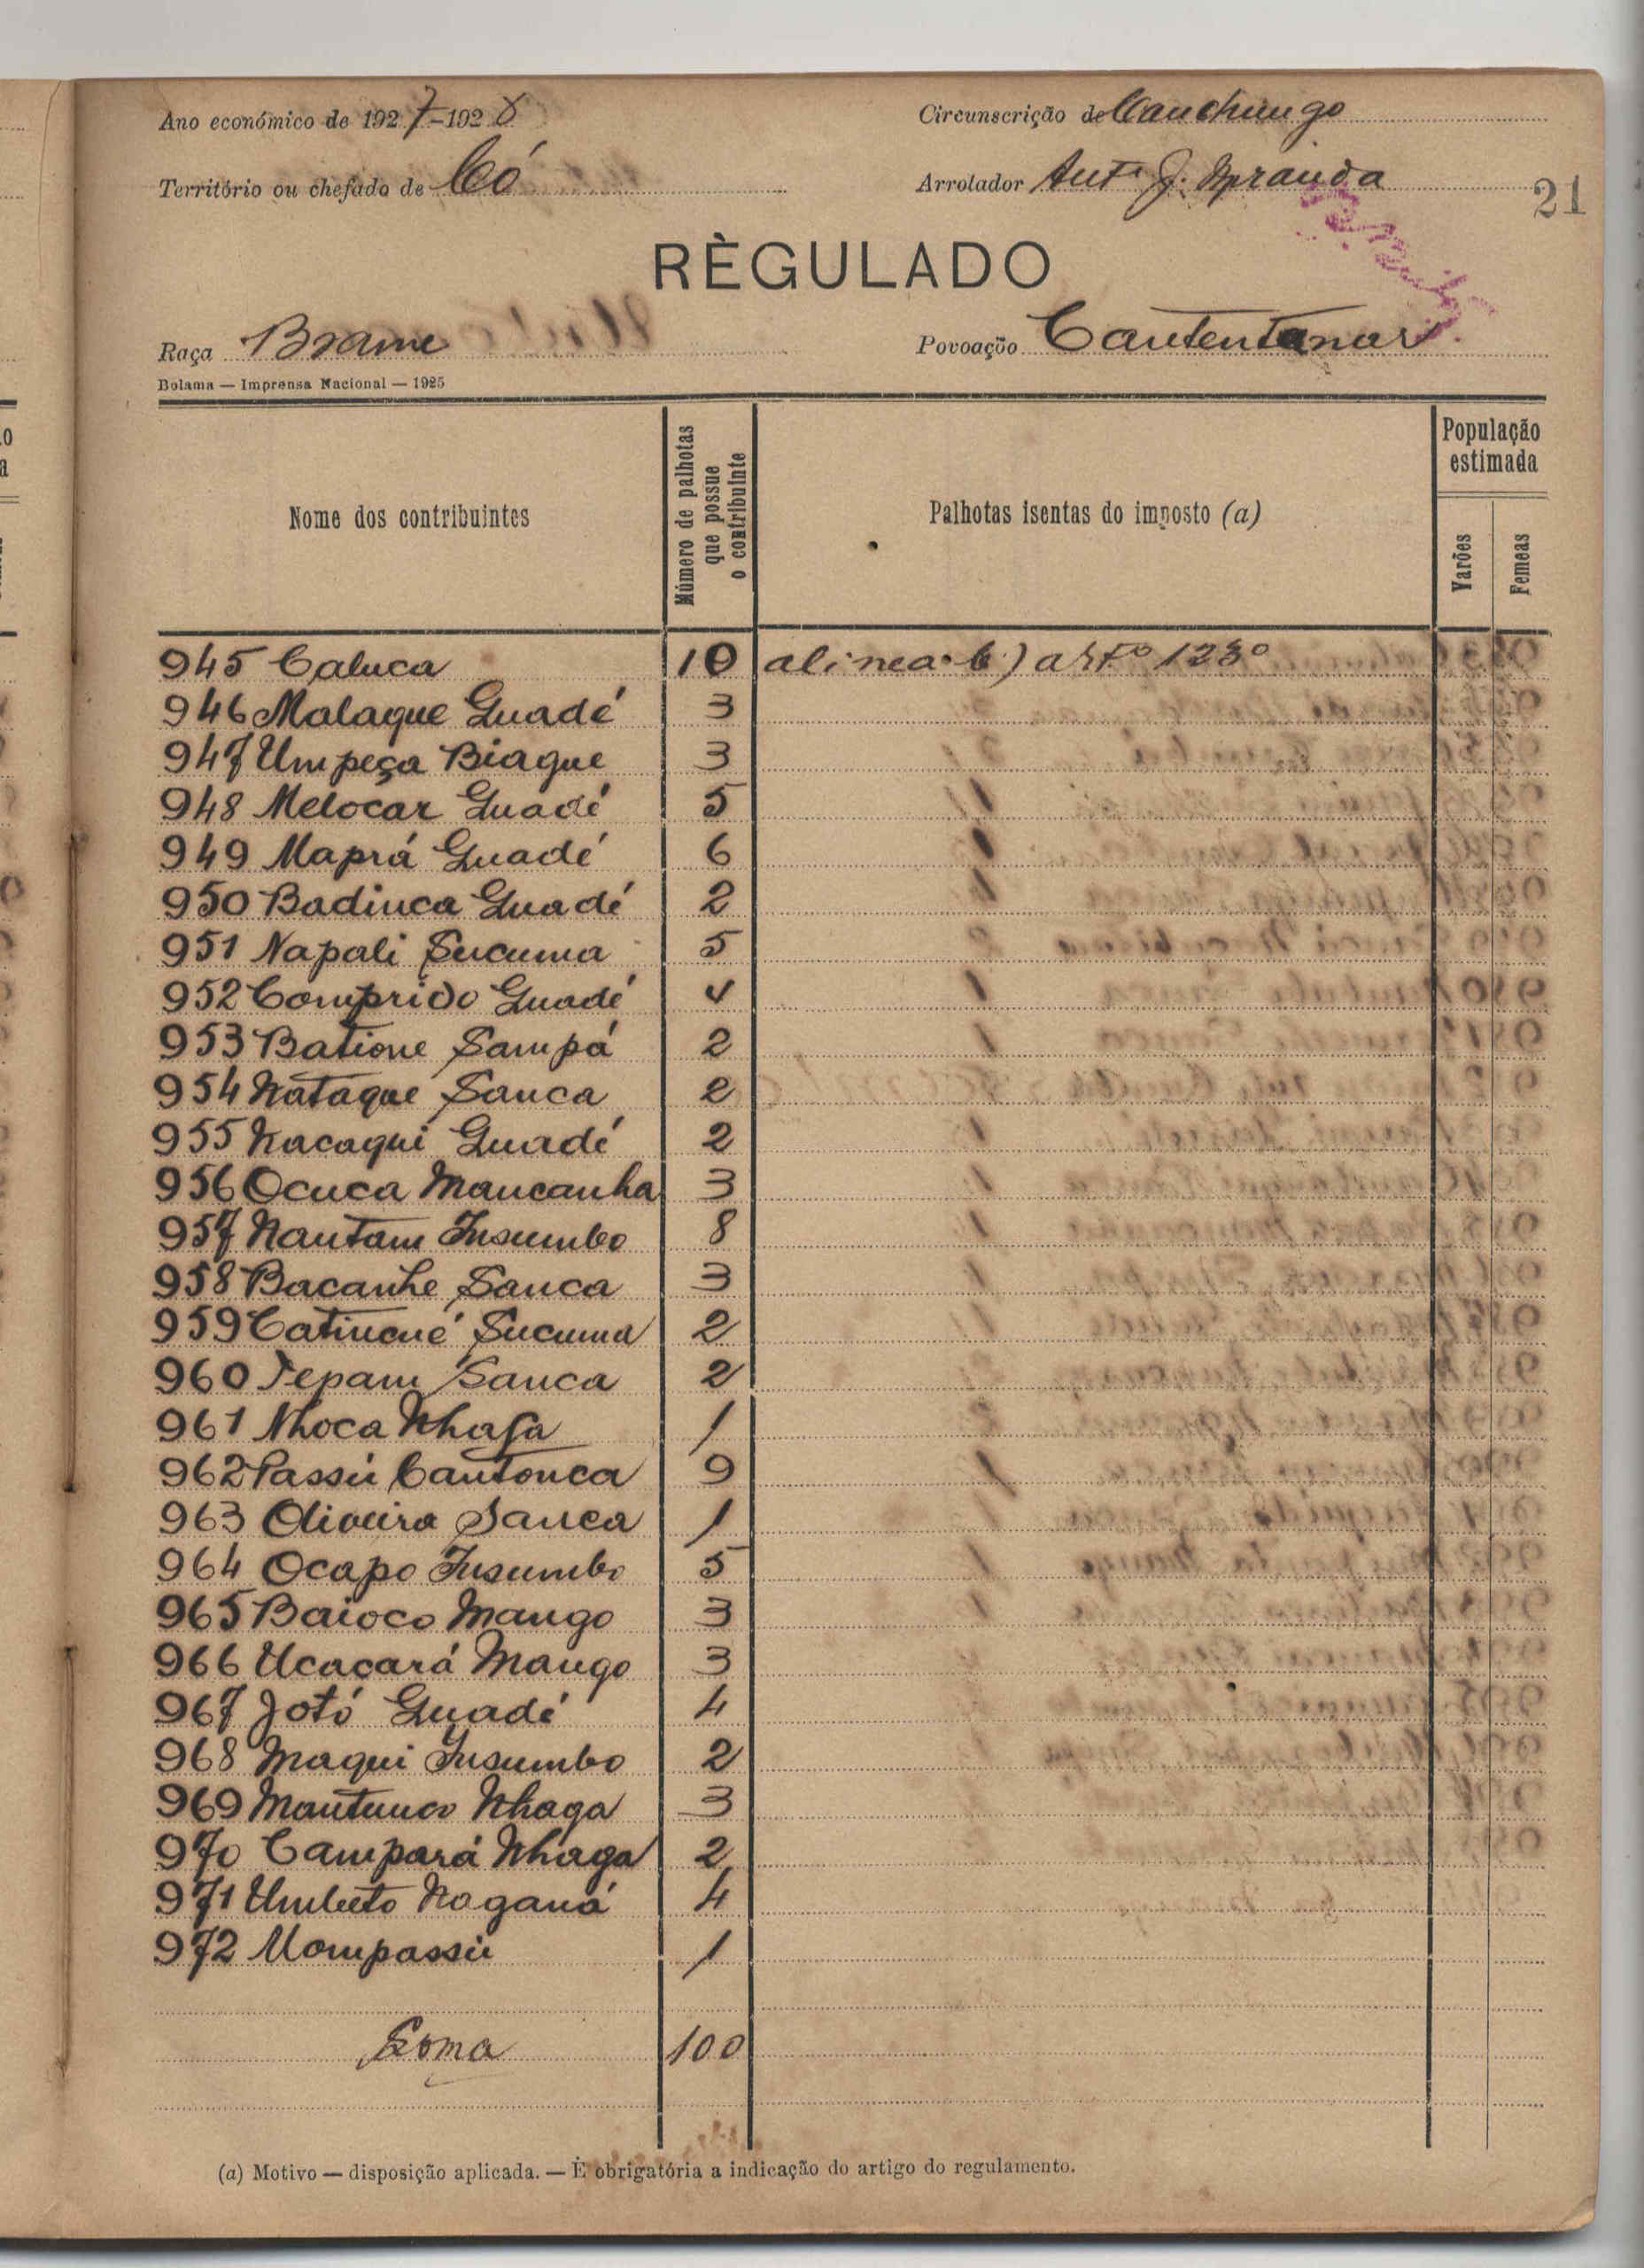 Ano económico de 1927-1928
Circunscrição de Canchungo
Território ou chefado de Có
Arrolador Antº J. Miranda
21
RÈGULADO
Raça Brame
Povoação Cantentanar
Bolama — Imprensa Nacional — 1925
Nome dos contribuintes
Número de palhotas que possue o contribuinte
Palhotas isentas do imposto (a)
População estimada
Varões
Femeas
945 Caluca 10 alinea b) artº 123º
946 Malaque Guadé 3
947 Umpeça Biague 3
948 Melocar Guadé 5
949 Maprá Guadé 6
950 Badinca Guadé 2
951 Napali Sucuma 5
952 Comprido Guadé 4
953 Batione Sampá 2
954 Nataque Sanca 2
955 Nacaqui Guadé 2
956 Ocuca Mancanha 3
957 Nautam Insumbo 8
958 Bacanhe Sanca 3
959 Catincué Sucuma 2
960 Tepam Sanca 2
961 Nhoca Nhaga 1
962 Passú Cantonca 9
963 Oliveira Sanca 1
964 Ocapo Insumbo 5
965 Baioco Mango 3
966 Ucaçará Mango 3
967 Jotó Guadé 4
968 Maqui Insumbo 2
969 Mantunco Nhaga 3
970 Campará Nhaga 2
971 Umbeto Naganá 4
972 Mompassú 1
Soma 100
(a) Motivo — disposição aplicada. — È obrigatória a indicação do artigo do regulamento.